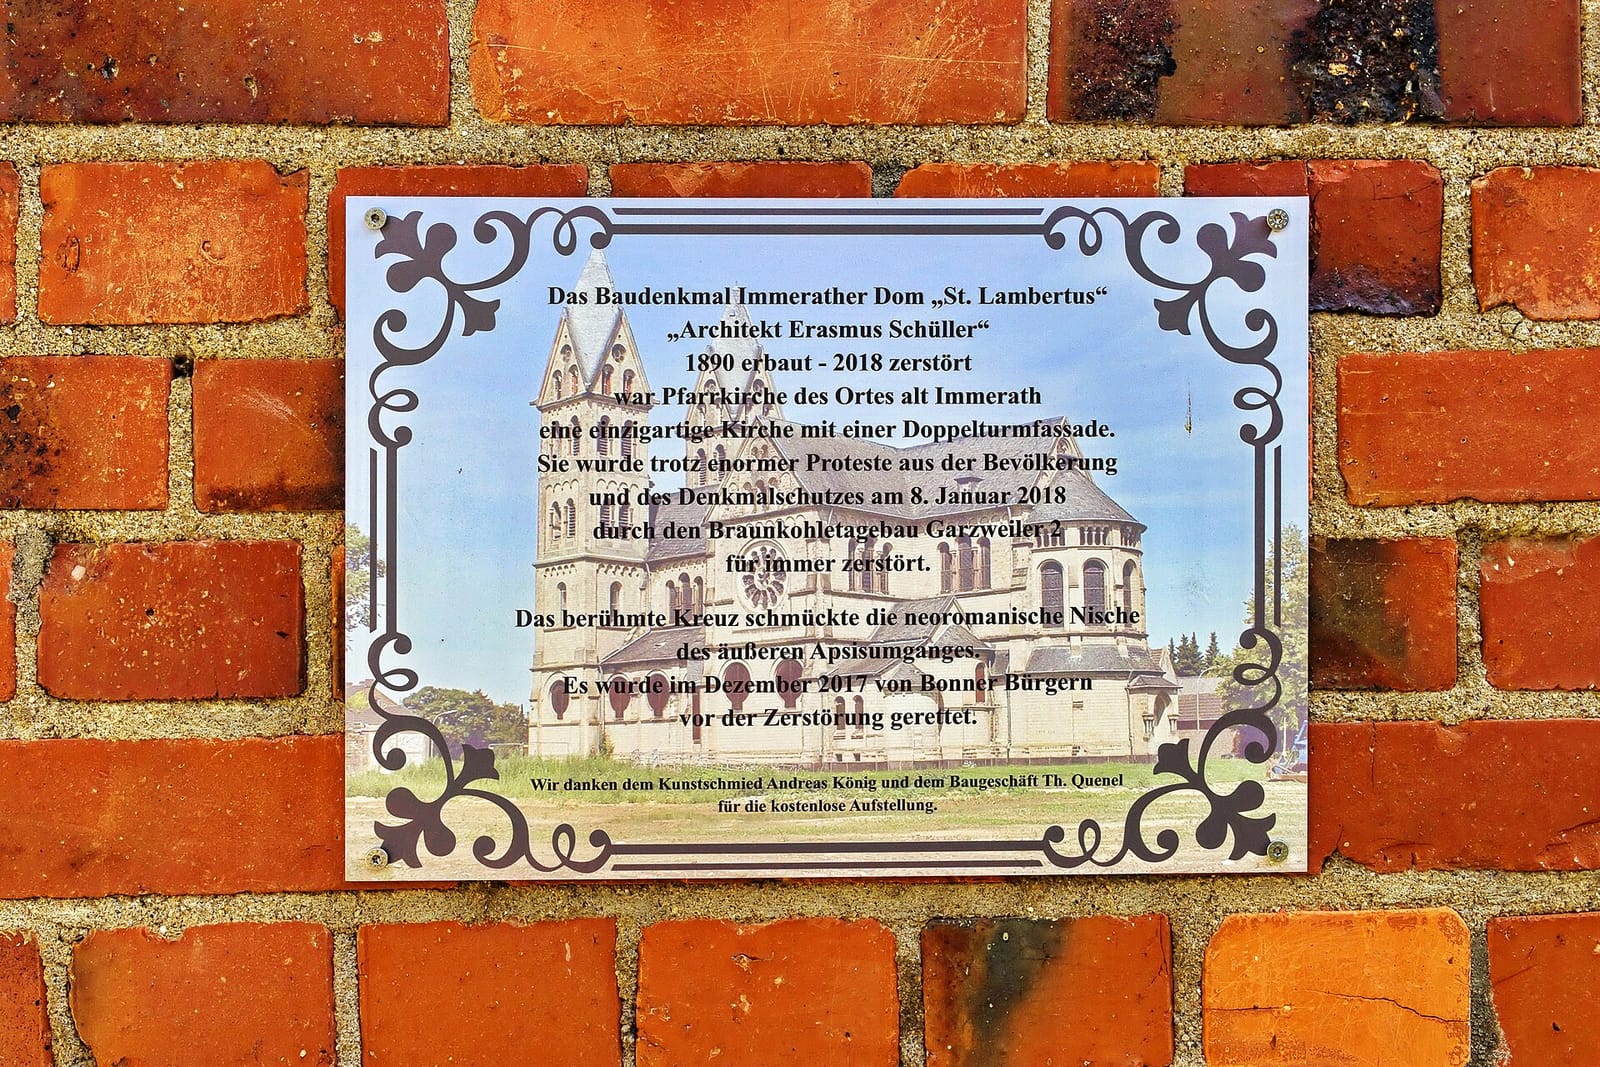 Das Baudenkmal Immerather Dom „St. Lambertus“
„Architekt Erasmus Schüller“
1890 erbaut - 2018 zerstört
war Pfarrkirche des Ortes alt Immerath
eine einzigartige Kirche mit einer Doppelturmfassade.
Sie wurde trotz enormer Proteste aus der Bevölkerung
und des Denkmalschutzes am 8. Januar 2018
durch den Braunkohletagebau Garzweiler 2
für immer zerstört.
Das berühmte Kreuz schmückte die neoromanische Nische
des äußeren Apsisumganges.
Es wurde im Dezember 2017 von Bonner Bürgern
vor der Zerstörung gerettet.
Wir danken dem Kunstschmied Andreas König und dem Baugeschäft Th. Quenel
für die kostenlose Aufstellung.